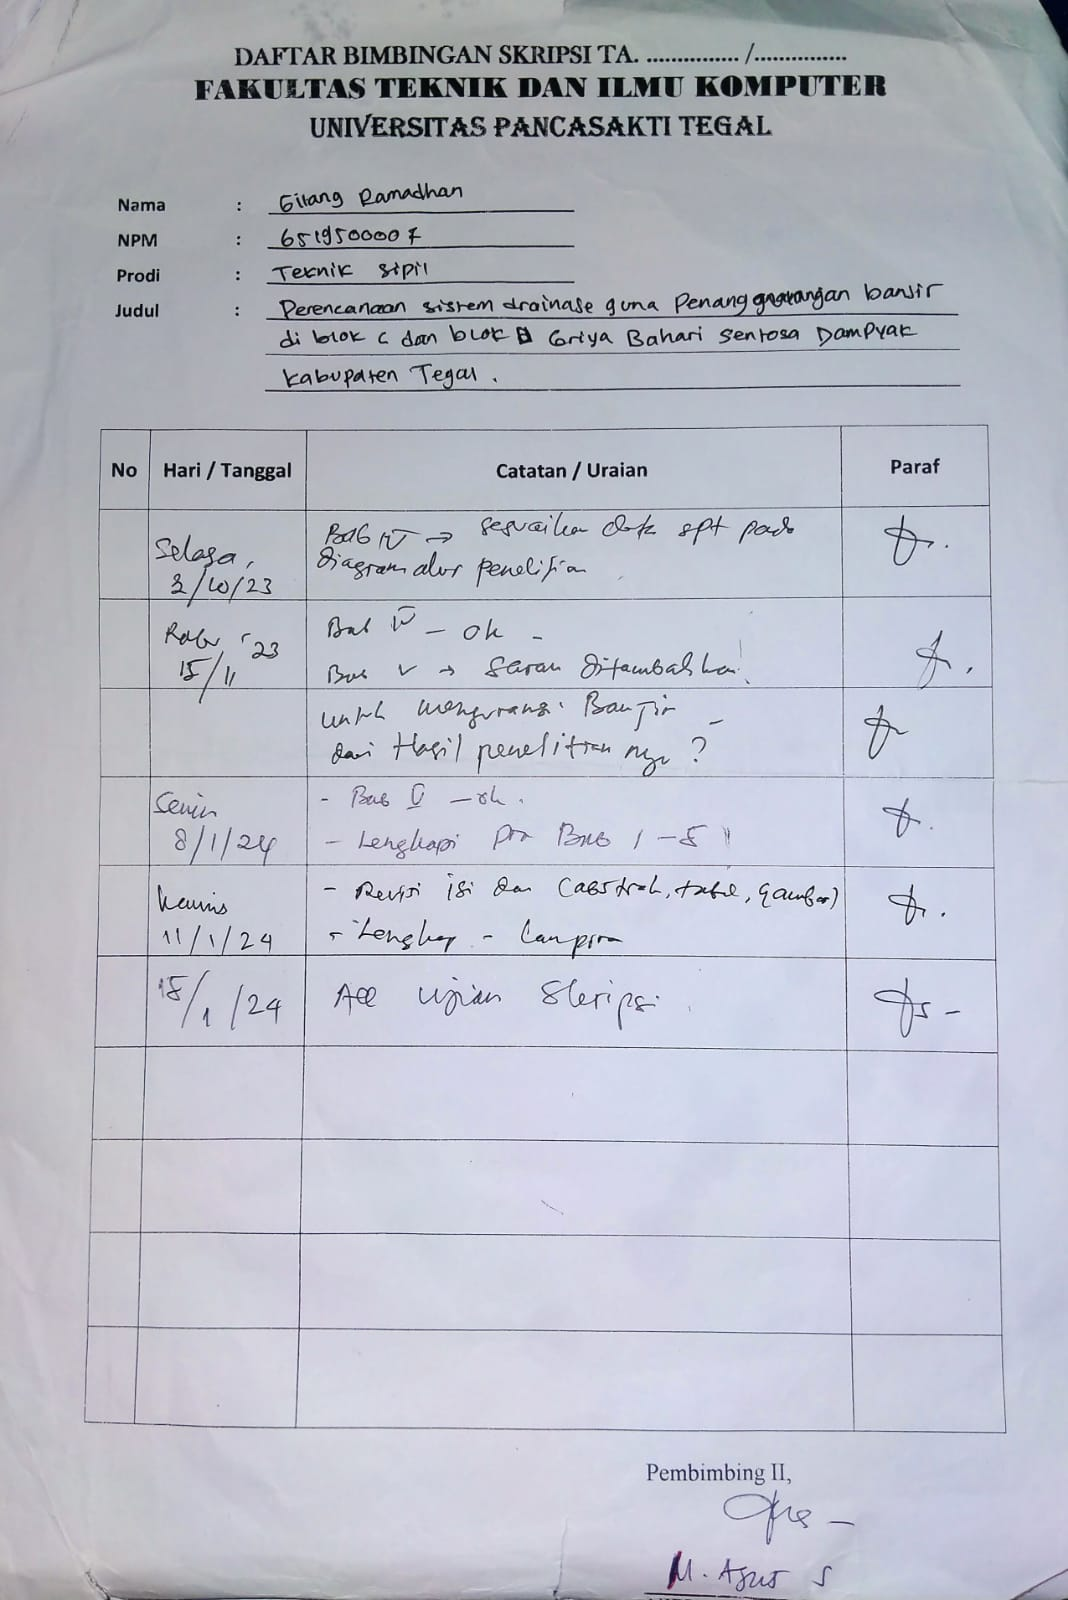 DAFTAR BIMBINGAN SKRIPSI TA. ................ /................
FAKULTAS TEKNIK DAN ILMU KOMPUTER
UNIVERSITAS PANCASAKTI TEGAL
Nama : Gilang Ramadhan
NPM : 6519500007
Prodi : Teknik Sipil
Judul : Perencanaan sistem drainase guna Penanggulangan banjir
di blok C dan blok D Griya Bahari Sentosa Dampyak
Kabupaten Tegal.
No Hari / Tanggal Catatan / Uraian Paraf
Selasa, 3/10/23
BAB IV → sesuaikan dgk spt pada
diagram alur penelitian
Rabu '23 15/11
Bab IV - ok -
Bab V → Saran ditambahkan!
untuk mengurangi Banjir -
dari Hasil penelitian nya?
Senin 8/1/24
- Bab V - ok.
- Lengkapi Bab 1 - 5
Kamis 11/1/24
- Revisi isi dan (abstrak, tabel, gambar)
- Lengkap - Lampiran
15/1/24 Acc Ujian Skripsi
Pembimbing II,
M. Agus S